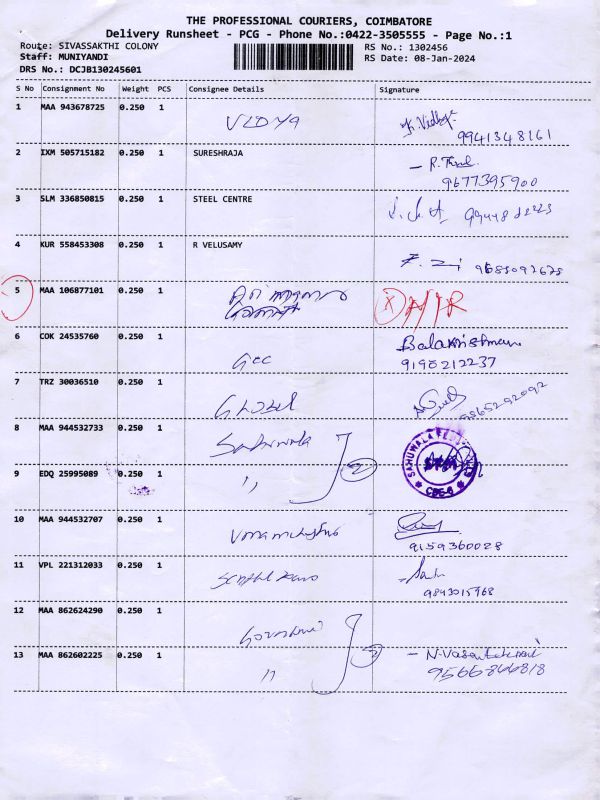 THE PROFESSIONAL COURIERS, COIMBATORE
Delivery Runsheet - PCG - Phone No.:0422-3505555 - Page No.:1
Route: SIVASSAKTHI COLONY RS No.: 1302456
Staff: MUNIYANDI RS Date: 08-Jan-2024
DRS No.: DCJB130245601
S No Consignment No Weight PCS Consignee Details Signature
1 MAA 943678725 0.250 1
9941348161
2 IXM 505715182 0.250 1 SURESHRAJA
9677395900
3 SLM 336850815 0.250 1 STEEL CENTRE
4 KUR 558453308 0.250 1 R VELUSAMY
5 MAA 106877101 0.250 1
6 COK 24535760 0.250 1 Gec Balakrishnan
9198212237
7 TRZ 30036510 0.250 1 Global
9865292092
8 MAA 944532733 0.250 1
SAHUWALA
CBE-6
9 EDQ 25995089 0.250 1 "
10 MAA 944532707 0.250 1
9159360028
11 VPL 221312033 0.250 1
9843015968
12 MAA 862624290 0.250 1
13 MAA 862602225 0.250 1 "
9566866818